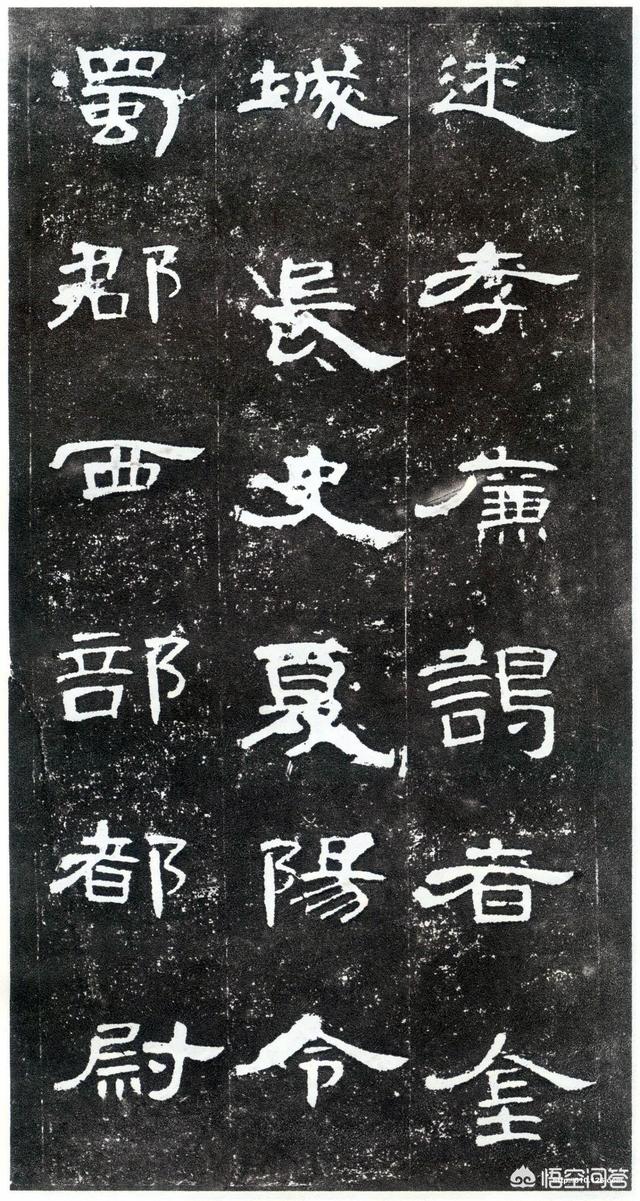 述孝廉謁者金
城長史夏陽令
蜀郡西部都尉
悟空问答